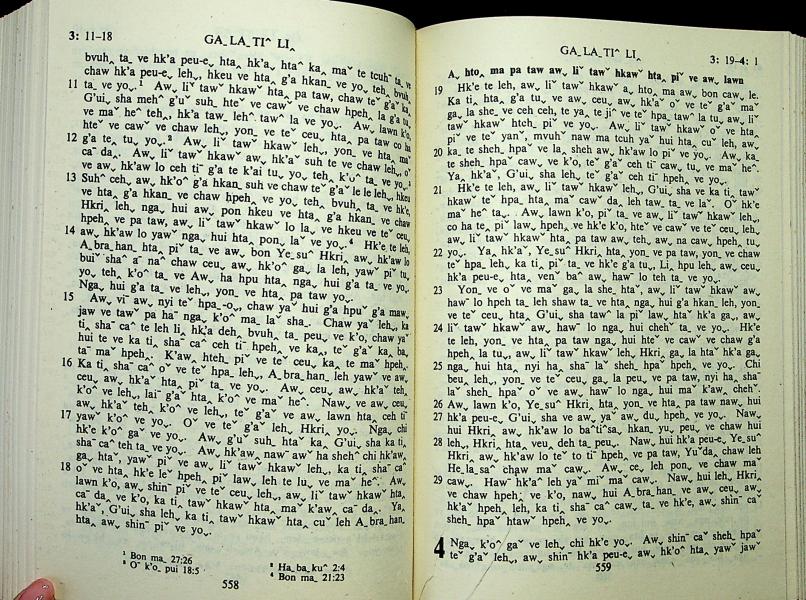 3: 11–18
GA_ LA_ TIˆ LI‸
bvuh‸ ta_ ve hk'a peu-e˯ hta‸ hk'a˯ htaˆ ka‸ maˇ te tcuhˉ ta_ ve
chaw hk'a peu-e˯ leh˯, hkeu ve hta‸ g'a hkan_ ve yo˯ teh‸ bvuh‸
11 ta_ ve yo˯.¹ Aw˯ liˇ tawˇ hkawˇ hta‸ pa taw, chaw teˇ g'aˇ ka‸
G'ui˯ sha mehˆ g'uˇ suh_ hteˇ ve cawˇ ve chaw hpeh‸ la g'a tu_
ve maˇ heˆ teh‸, hk'a taw_ lehˆ tawˆ la ve yo˯. Aw˯ lawn k'o‸
hteˇ ve cawˇ ve chaw leh˯, yon_ ve teˇ ceu_ hta‸ pa taw co ha
12 g'a te_ tu_ yo˯.² Aw˯ liˇ tawˇ hkawˇ leh˯, yon_ ve hta‸ maˇ
caˉ da‸. Aw˯ liˇ tawˇ hkawˇ aw˯ hk'aˇ suh te ve chaw leh˯, oˇ
ve aw˯ hk'aw lo ceh tiˉ g'a te k'ai tu_ yo˯ teh‸ k'oˆ ta_ ve yo˯.³
13 Suhˆ ceh˯ aw˯ hk'oˆ g'a hkan_ suh ve chaw teˇ g'aˇ le le leh˯ hkeu
ve hta‸ g'a hkan_ ve chaw hpeh‸ ve yo˯ teh‸ bvuh‸ ta_ ve hk'e,
Hkri_ leh˯ nga˯ hui aw˯ pon hkeu ve hta‸ g'a hkan_ ve chaw
hpeh‸ ve pa taw, aw˯ liˇ tawˇ hkawˇ lo la˯ ve hkeu ve teˇ ceu_
14 aw˯ hk'aw lo yawˇ nga˯ hui hta‸ pon_ laˇ ve yo˯.⁴ Hk'e te leh˯
A_bra_han_ hta‸ piˇ ta_ ve aw˯ bon Ye_suˆ Hkri_ aw˯ hk'aw lo
buiˇ shaˆ aˉ naˆ chaw ceu_ aw˯ hk'oˆ ga˯ la leh˯ yawˇ piˇ tu_
yo˯ teh‸ k'oˆ ta_ ve Aw˯ ha hpu hta‸ nga˯ hui g'a ta_ ve yo˯.
Nga˯ hui g'a ta_ ve leh˯, yon_ ve hta‸ pa taw yo˯.
15 Aw˯ viˉ aw˯ nyi teˇ hpa_-o˯, chaw yaˇ hui g'a hpuˇ g'a maw˯
jaw ve tawˇ pa haˉ nga˯ k'oˆ ma_ laˇ sha_. Chaw yaˇ leh˯, ka
ti_ shaˉ caˆ te leh li‸ hk'a deh_ bvuh‸ ta_ peu_ ve k'o‸ chaw yaˇ
hui te ve ka ti_ shaˉ caˆ ceh tiˉ hpeh‸ ve ka‸, teˇ g'aˇ ka‸ ba‸
taˉ maˇ hpeh‸. K'aw‸ hteh_ piˇ ve teˇ ceu_ ka‸ te maˇ hpeh‸.
16 Ka ti_ shaˉ caˆ oˇ ve teˇ hpa_ leh˯, A_bra_han_ leh yawˇ ve aw˯
ceu_ aw˯ hk'aˇ hta‸ piˇ ta_ ve yo˯. Aw˯ ceu_ aw˯ hk'aˇ teh‸
k'oˆ ve leh˯, laiˉ g'aˇ hta‸ k'oˆ ve maˇ heˆ. Naw˯ ve aw˯ ceu_
aw˯ hk'aˇ teh‸ k'oˆ ve leh˯, teˇ g'aˇ ve aw˯ lawn hta‸ ceh tiˉ
17 yawˇ k'oˆ ve yo˯. Oˇ ve teˇ g'aˇ leh˯ Hkri_ yo˯. Nga˯ chi
hk'e k'oˆ gaˇ ve yo˯. Aw˯ g'uˇ suh_ htaˇ ka‸ G'ui˯ sha ka ti_
shaˉ caˆ teh ta_ ve yo˯. Aw˯ hk'aw˯ nawˇ awˇ ha shehˆ chi hk'aw˯
ga˯ htaˇ, yawˇ piˇ ve aw˯ liˇ tawˇ hkawˇ leh˯, ka ti_ shaˉ caˆ
18 oˇ ve hta‸ hk'e leˇ hpeh‸ piˇ law‸ leh te lu_ ve maˇ heˆ. Aw˯
lawn k'o‸ aw˯ shinˉ piˇ ve teˇ ceu_ leh˯, aw˯ liˇ tawˇ hkawˇ hta‸
caˉ da‸ ve k'o‸ ka ti_ tawˇ hkawˇ hta‸ maˇ k'aw‸ caˉ da‸. Ya‸
hk'aˇ, G'ui˯ sha leh˯ ka ti_ tawˇ hkawˇ hta‸ cuˇ leh A_bra_han_
hta‸ aw˯ shinˉ piˇ ve yo˯.
¹ Bon ma_ 27:26
² Oˉ k'o‸ pui 18:5
³ Ha_ba_kuˆ 2:4
⁴ Bon ma_ 21:23
558
GA_ LA_ TIˆ LI‸
3: 19–4: 1
A˯ hto‸ ma pa taw aw˯ liˇ tawˇ hkawˇ hta‸ piˇ ve aw˯ lawn
19 Hk'e te leh, aw˯ liˇ tawˇ hkawˇ a˯ hto‸ ma aw˯ bon caw˯ le.
Ka ti_ hta‸ g'a tu_ ve aw˯ ceu_ aw˯ hk'aˇ oˇ ve teˇ g'aˇ maˇ
ga˯ la she_ ve ceh ceh, te ya‸ te jiˇ ve teˇ hpa_ tawˆ la tu_ aw˯ liˇ
tawˇ hkawˇ htch_ piˇ ve yo˯. Aw˯ liˇ tawˇ hkawˇ oˇ ve hta‸
piˇ ve teˇ yanˇ, mvuhˇ naw ma tcuh yaˇ hui hta‸ cuˇ leh, aw˯
20 ka_ te sheh_ hpaˇ ve la‸ sheh aw˯ hk'aw lo piˇ ve yo˯. Aw˯ ka_
te sheh_ hpaˇ caw˯ ve k'o‸ teˇ g'aˇ ceh tiˉ caw˯ tu_ ve maˇ heˆ.
Ya‸ hk'aˇ, G'ui˯ sha leh˯ teˇ g'aˇ ceh tiˉ hpeh‸ ve yo˯.
21 Hk'e te leh, aw˯ liˇ tawˇ hkawˇ leh˯, G'ui˯ sha ve ka ti_ tawˇ
hkawˇ teˇ hpa_ hta‸ maˇ caw˯ da‸ leh taw_ ta_ ve laˇ. Oˇ hk'e
maˇ heˆ ta‸. Aw˯ lawn k'o‸ piˇ ta_ ve aw˯ liˇ tawˇ hkawˇ leh˯
co ha te‸ piˇ law‸ hpeh‸ ve hk'e k'o‸ hteˇ ve cawˇ ve teˇ ceu_ leh˯
aw˯ liˇ tawˇ hkawˇ hta‸ pa taw aw˯ teh‸ aw˯ na caw˯ hpeh‸ tu_
22 yo˯. Ya‸ hk'aˇ, Ye_suˆ Hkri_ hta‸ yon_ ve pa taw, yon_ ve chaw
teˇ hpa_ leh˯ ka ti_ piˇ ta_ ve hk'e g'a tu_, Li‸ hpu leh˯, aw˯ ceu_
hk'a peu-e˯ hta‸ venˇ baˆ aw˯ hawˇ lo teh ta_ ve yo˯.
23 Yon_ ve oˇ ve maˇ ga˯ la she_ htaˇ, aw˯ liˇ tawˇ hkawˇ aw˯
hawˇ lo hpeh ta_ leh shaw ta_ ve hta‸ nga˯ hui g'a hkan_ leh, yon_
ve teˇ ceu_ hta‸ G'ui˯ sha tawˆ la piˇ law‸ htaˇ hk'a ga˯, aw˯
24 liˇ tawˇ hkawˇ aw˯ hawˇ lo nga˯ hui chehˇ ta_ ve yo˯. Hk'e
te leh, yon_ ve hta‸ pa taw nga˯ hui hteˇ ve cawˇ ve chaw g'a
hpeh‸ la tu_, aw˯ liˇ tawˇ hkawˇ leh˯, Hkri_ ga˯ la htaˇ hk'a ga˯
25 nga˯ hui hta‸ nyi ha‸ shaˉ laˇ sheh_ hpaˇ hpeh‸ ve yo˯. Chi
beu_ leh˯, yon_ ve teˇ ceu_ ga˯ la peu_ ve pa taw, nyi ha‸ shaˉ
laˇ sheh_ hpaˇ oˇ ve aw˯ hawˇ lo nga˯ hui maˇ k'aw‸ chehˇ.
26 Aw˯ lawn k'o‸ Ye_suˆ Hkri_ hta‸ yon_ ve hta‸ pa taw naw˯ hui
27 hk'a peu-e˯ G'ui˯ sha ve aw˯ yaˇ aw˯ du‸ hpeh‸ ve yo˯. Naw˯
hui Hkri_ aw˯ hk'aw lo baˆti˘saˆ hkan_ yu‸ peu_ ve chaw hui
28 leh˯, Hkri_ hta‸ veu_ deh_ ta_ peu_. Naw˯ hui hk'a peu-e˯ Ye_suˆ
Hkri_ aw˯ hk'aw lo teˇ to tiˉ hpeh‸ ve pa taw, Yuˇda‸ chaw leh
He_la_saˆ chaw maˇ caw˯. Aw˯ ce‸ leh pon_ ve chaw maˇ
29 caw˯. Hawˉ hk'aˆ leh yaˇ miˇ maˇ caw˯. Naw˯ hui leh˯, Hkri_
ve chaw hpeh‸ ve k'o‸ naw˯ hui A_bra_han_ ve aw˯ ceu_ aw˯
hk'aˇ hpeh‸ leh, ka ti_ shaˉ caˆ caw˯ ta_ ve hk'e, aw˯ shinˉ caˇ
sheh_ hpaˇ htawˇ hpeh‸ ve yo˯.
4 Nga˯ k'oˆ gaˇ ve leh˯ chi hk'e yo˯. Aw˯ shinˉ caˇ sheh_ hpaˇ
teˇ g'aˇ leh˯, aw˯ shinˉ hk'a peu-e˯ aw˯ hk'oˆ hta‸ yawˇ jawˇ
559